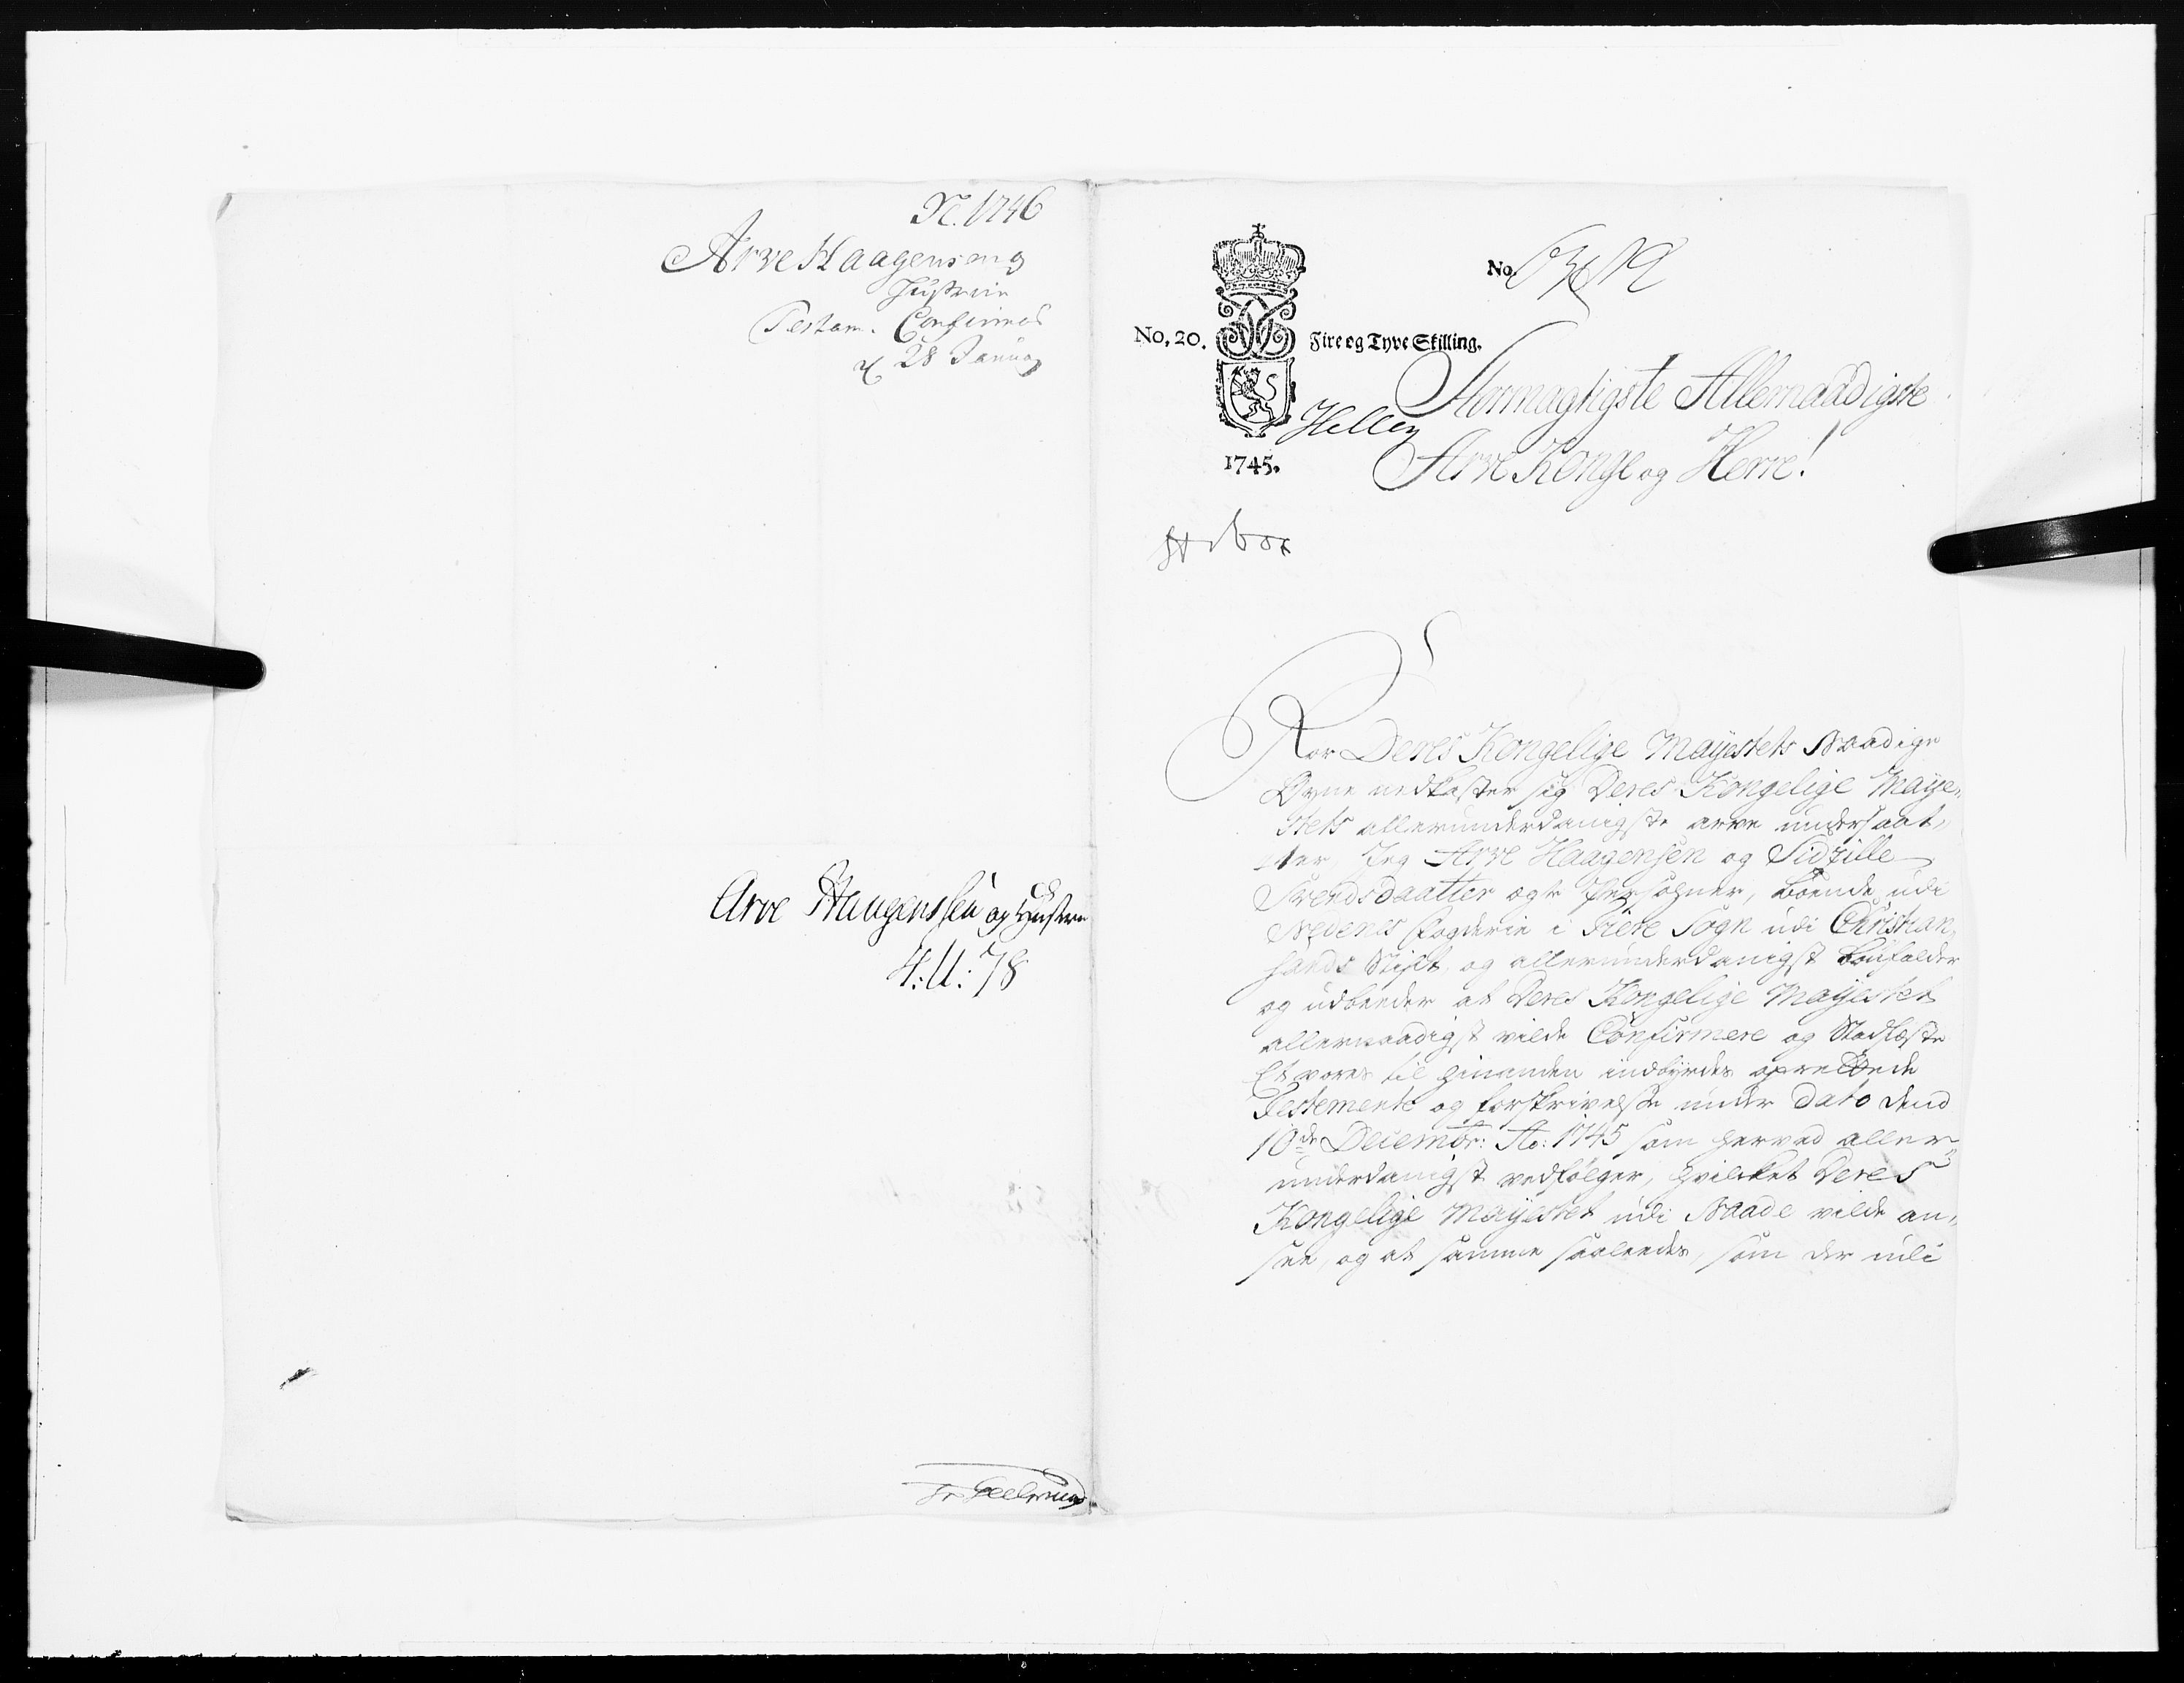 N. 1746
Arve Haagensen og
Hustrue
Testam. Confirmad
d 28 Januar
Arve Haugenssen og Hustrue
4: U: 78
No. 20.
Fire og Tyve Skilling.
1745.
No.
Stormagtigste Allernaadigste
Arve Konge og Herre!
For Deres Kongelige Mayestets Naadige
Øyne nedkaster sig Deres Kongelige Maye-
stets allerunderdanigste arve undersaat-
ter, Jeg Arve Haagensen og Sidzille
Svendsdaatter ægte Personer, boende udi
Nedenes Fogderie i Fiere Sogn udi Christian-
sands Stift, og allerunderdanigst bønfalder
og udbeeder at Deres Kongelige Mayestet
allernaadigst vilde Confirmere og Stadfæste
Et vores til hinanden indbyrdes oprettede
Testemente og forskrivelse under Dato dend
10de Decembr: Ao: 1745 som herved aller-
underdanigst vedfølger, hvilket Deres
Kongelige Mayestet udi Naade vilde an-
see, og at samme saaledes, som der udi